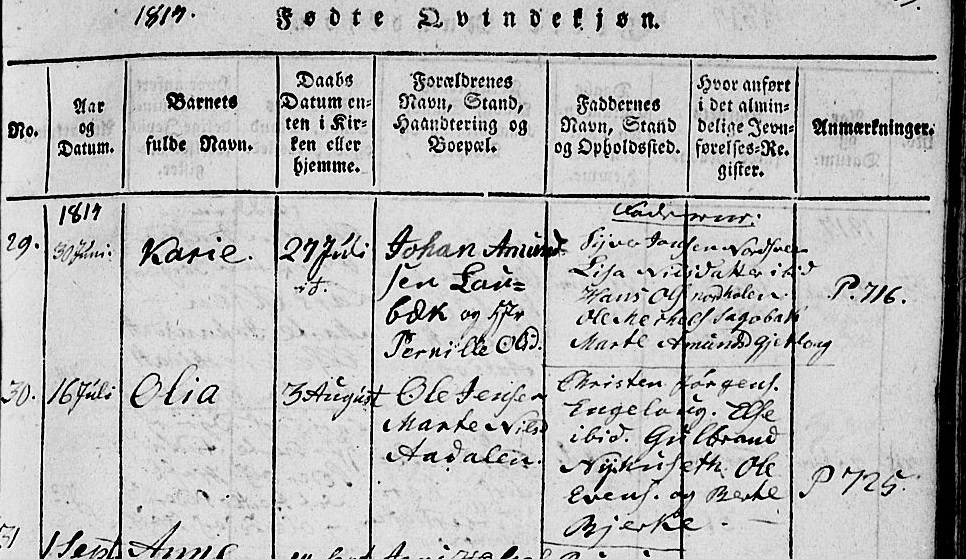 1817.
Fødte Qvindekjøn.
No.
Aar
og
Datum.
Barnets
fulde Navn.
Daabs
Datum en-
ten i Kir-
ken eller
hjemme.
Forældrenes
Navn, Stand,
Haandtering og
Boepæl.
Faddernes
Navn, Stand
og Opholdssted.
Hvor anført
i det almin-
delige Jevn-
førelses-Re-
gister.
Anmærkninger.
1817
29.
30 Juni.
Karie.
27 Juli
Johan Amund
sen Lau-
bæk og
Pernille
Jonsen
Lisa Nilsdatter ibid
Hans Ols
Ole
Marte Amunds
P. 716.
30.
16 Juli
Olia
3 August
Ole Jensen
Marte Nilsd
Aadalen.
Christen Jørgens.
Engeloug. Else
ibid. Gulbrand
Nykuseth. Ole
Evens. og Berte
Bjerke.
P 725.
31
1 Sept
Anne